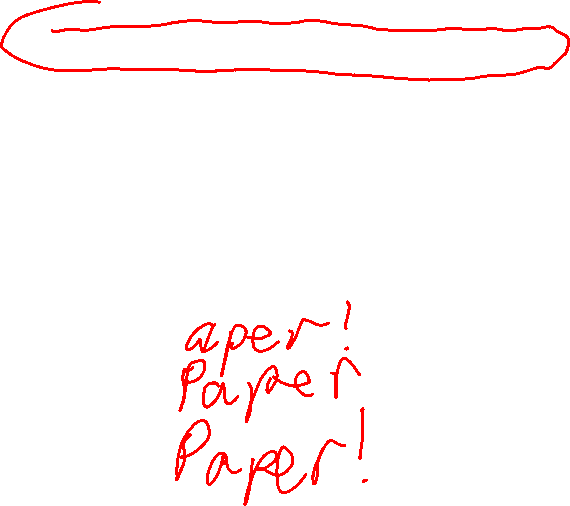 aper!
Paper
Paper!